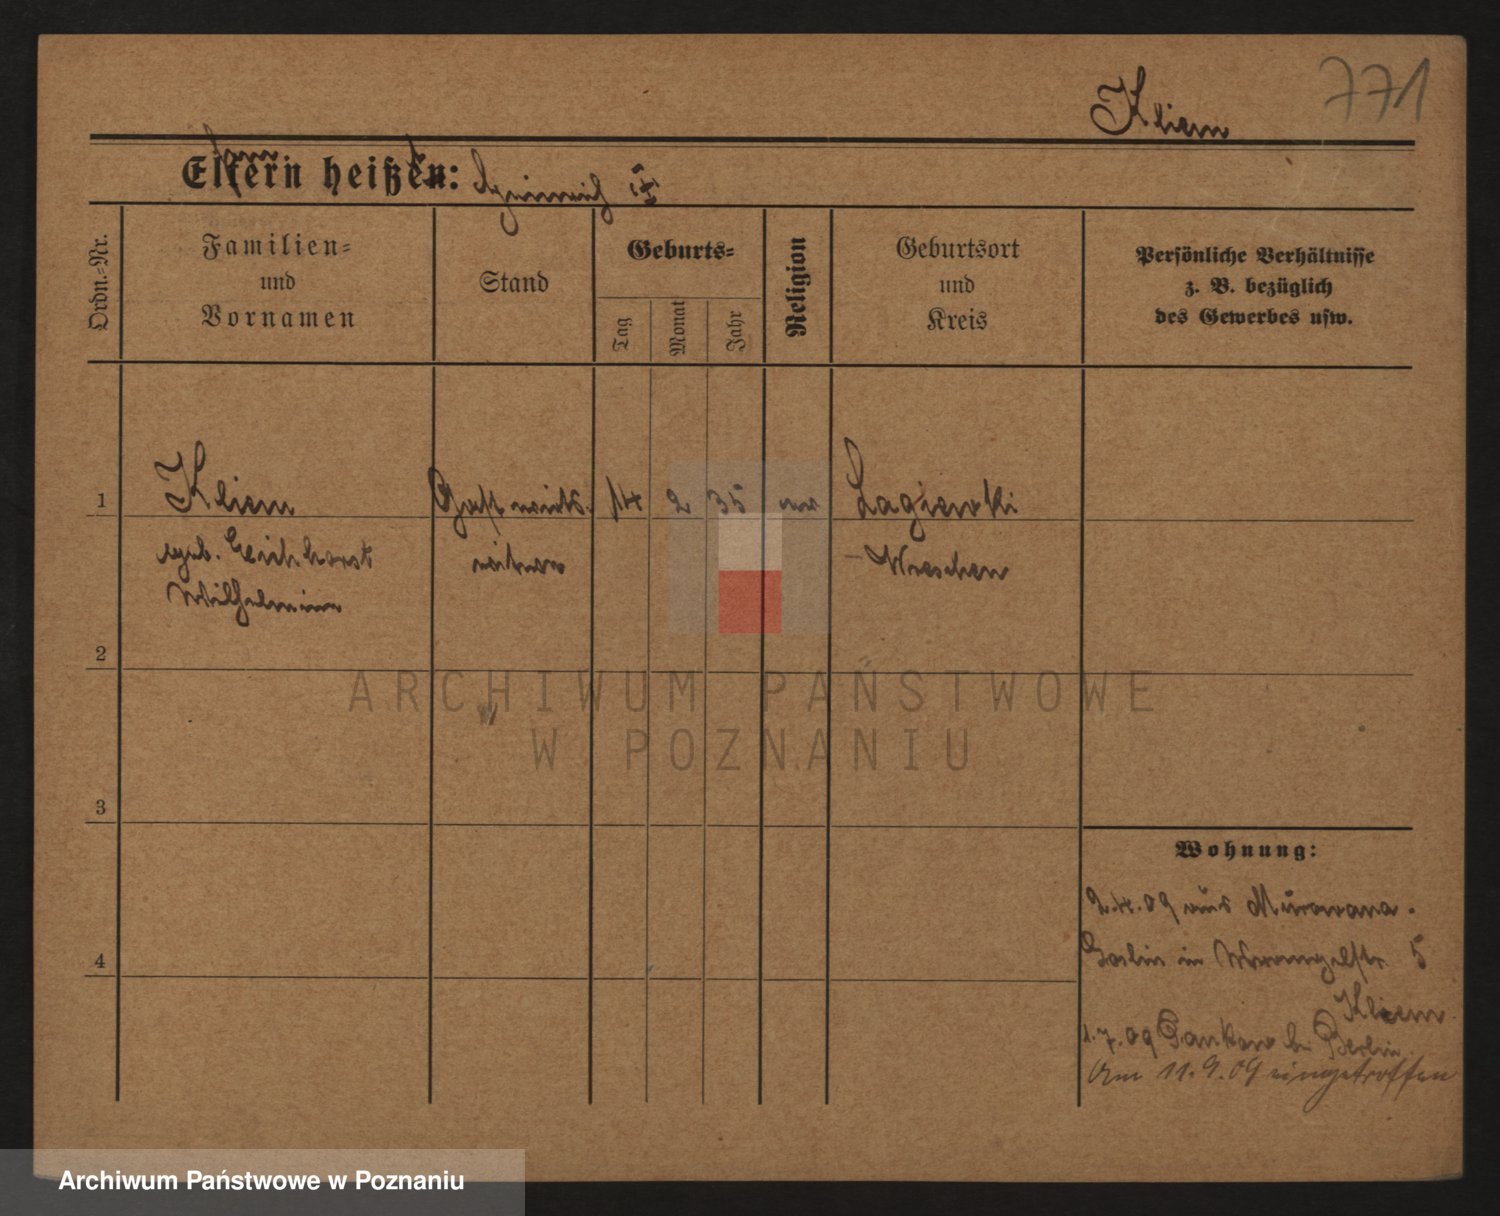 771
Kliem
Eltern heißen: Heinrich
Ordn.-Nr.
Familien-
und
Vornamen
Stand
Geburts-
Tag
Monat
Jahr
Religion
Geburtsort
und
Kreis
Persönliche Verhältnisse
z. B. bezüglich
des Gewerbes usw.
1
Kliem
Gastwirts
14
2
35
Lagiewki
geb. Eichhorst
witwe
Wreschen
Wilhelmine
2
3
4
Wohnung:
2.4.09 aus Murowana
Goslin in Wrangelstr. 5
Kliem
1.7.09 Pankow b. Berlin
Am 11.9.09 eingetroffen
ARCHIWUM PAŃSTWOWE
W POZNANIU
Archiwum Państwowe w Poznaniu